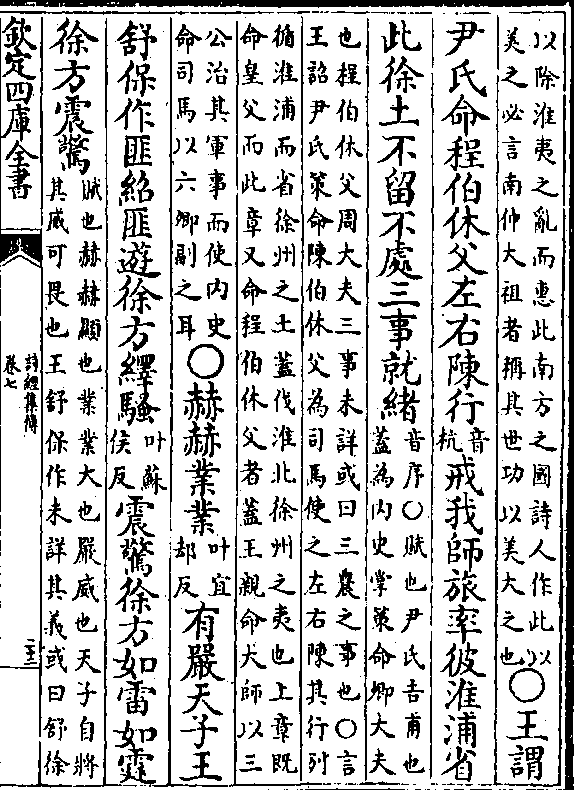 以除淮夷之亂而惠此南方之國詩人作此以
美之必言南仲大祖者稱其世功以美大之也
〇王謂
尹氏命程伯休父左右陳行
音
杭
戒我師旅率彼淮浦省
此徐土不留不處三事就緒
音序〇賦也尹氏吉甫也
蓋為内史掌策命卿大夫
也程伯休父周大夫三事未詳或曰三農之事也〇言
王詔尹氏策命陳伯休父為司馬使之左右陳其行列
循淮浦而省徐州之土蓋伐淮北徐州之夷也上章既
命皇父而此章又命程伯休父者蓋王親命大師以三
公治其軍事而使内史
命司馬以六卿副之耳
〇赫赫業業
叶宜
却反
有嚴天子王
舒保作匪紹匪遊徐方繹騷
叶蘇
侯反
震驚徐方如雷如霆
徐方震驚
賦也赫赫顯也業業大也嚴威也天子自將
其威可畏也王舒保作未詳其義或曰舒徐
欽定四庫全書
詩經集傳
卷七